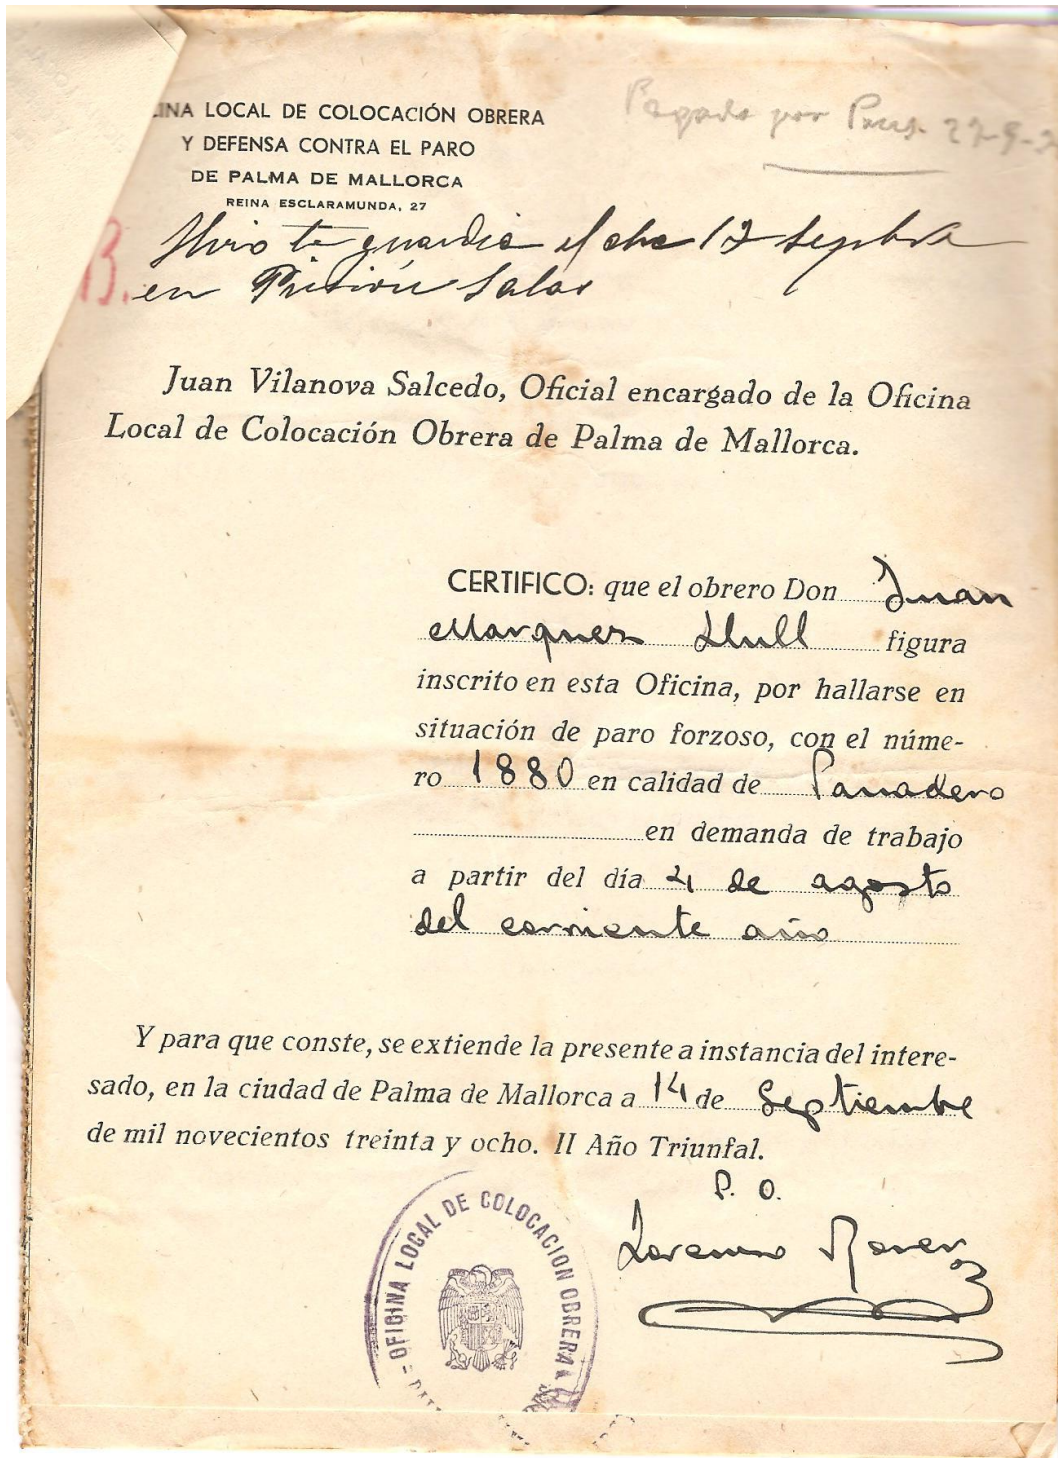 CINA LOCAL DE COLOCACIÓN OBRERA
Y DEFENSA CONTRA EL PARO
DE PALMA DE MALLORCA
REINA ESCLARAMUNDA, 27
Pagado por
Hizo guardia el dia 12 Sepbre
en Prisión Salas
Juan Vilanova Salcedo, Oficial encargado de la Oficina
Local de Colocación Obrera de Palma de Mallorca.
CERTIFICO: que el obrero Don Juan
Marquez Llull figura
inscrito en esta Oficina, por hallarse en
situación de paro forzoso, con el núme-
ro 1880 en calidad de Panadero
en demanda de trabajo
a partir del día 4 de agosto
del corriente año
Y para que conste, se extiende la presente a instancia del intere-
sado, en la ciudad de Palma de Mallorca a 14 de Septiembre
de mil novecientos treinta y ocho. II Año Triunfal.
P. O.
Lorenzo Roser
OFICINA LOCAL DE COLOCACION OBRERA